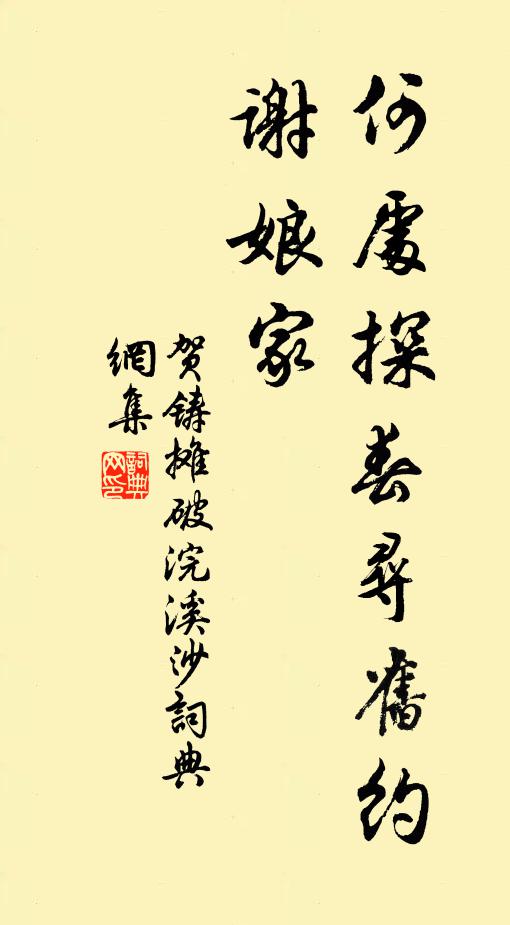 何處探春尋舊約
謝娘家
賀鑄攤破浣溪沙詞典
網集
詞典網印